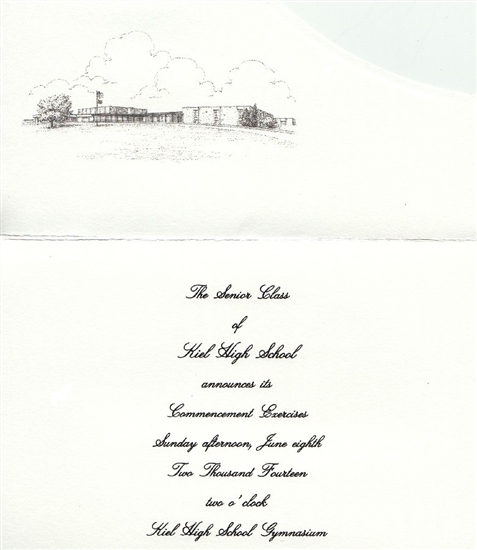 The Senior Class
of
Kiel High School
announces its
Commencement Exercises
Sunday afternoon, June eighth
Two Thousand Fourteen
two o'clock
Kiel High School Gymnasium